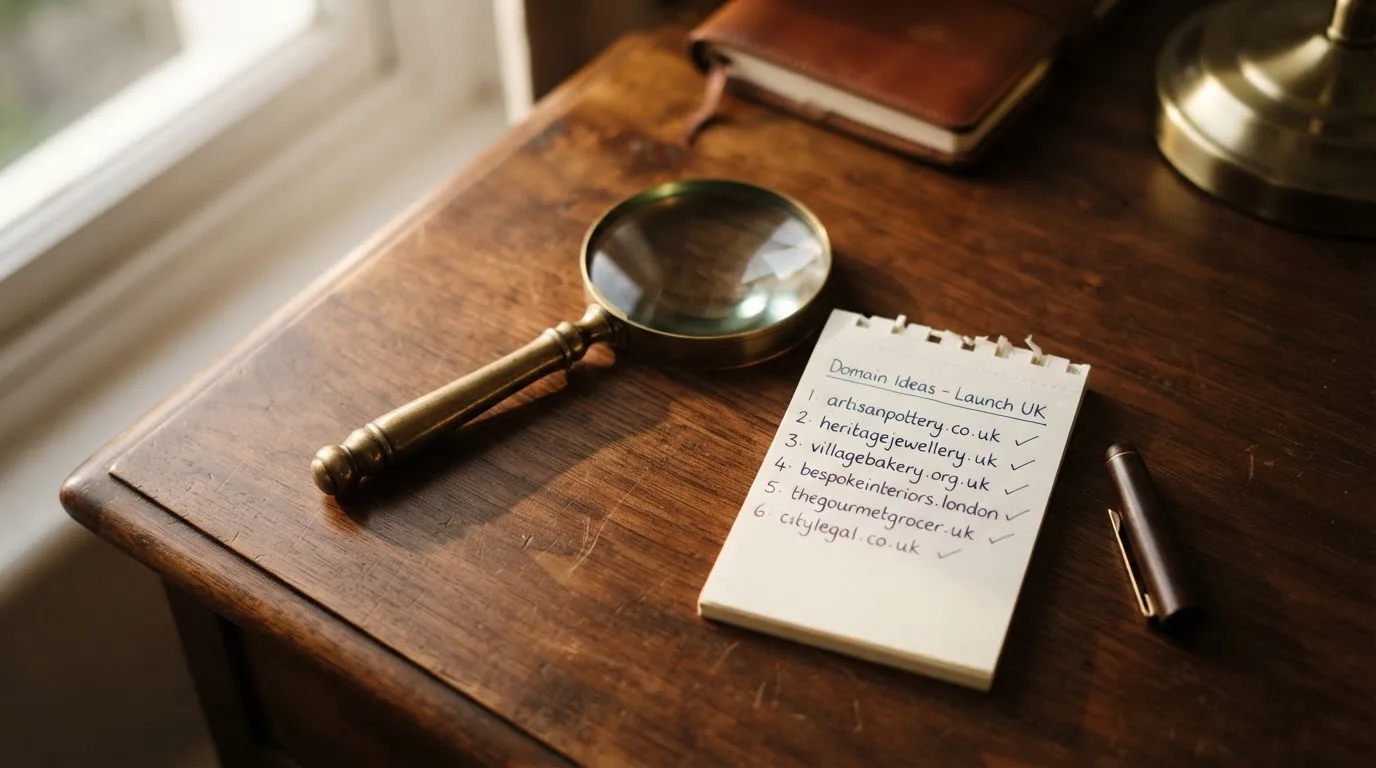 Domain Ideas - Launch UK
1. artisanpottery.co.uk ✓
2. heritagejewellery.uk ✓
3. villagebakery.org.uk ✓
4. bespokeinteriors.london ✓
5. thegourmetgrocer.uk ✓
6. citylegal.co.uk ✓